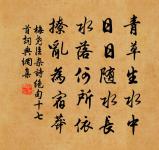 青草生水中
日日随水長
水落何所依
撩亂為宿莽
梅尧臣杂詩绝句十七
首詞典網集